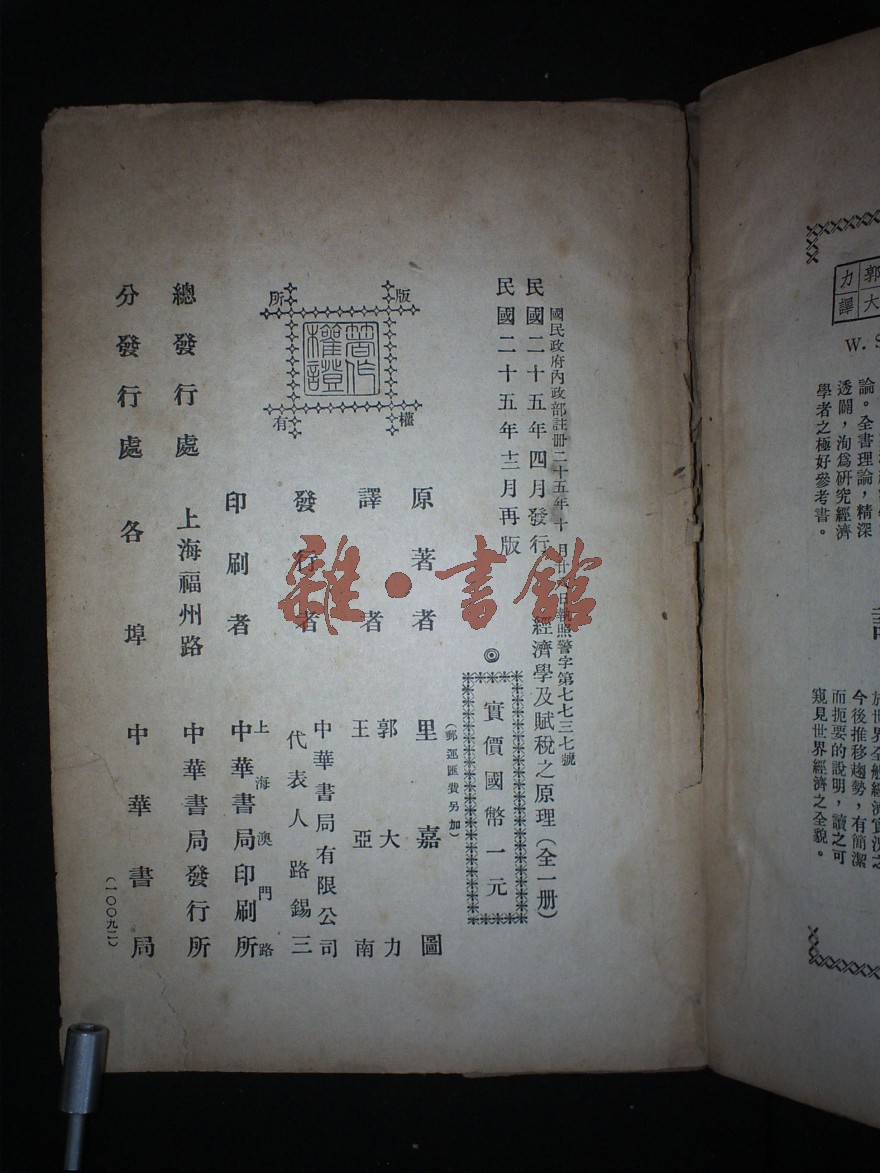 郭大
力譯
W. S
論。全書理論，精深
透闢，洵爲研究經濟
學者之極好參考書。
於世界全般經濟實況之
今後推移趨勢，有簡潔
而扼要的說明，讀之可
窺見世界經濟之全貌。
國民政府內政部註冊二十五年十月廿八日執照警字第七七三七號
民國二十五年四月發行
民國二十五年十二月再版
經濟學及賦稅之原理（全一册）
◎
實價國幣一元
（郵運匯費另加）
原著者 里嘉圖
譯者 郭大力
王亞南
發行者 中華書局有限公司
代表人 路錫三
印刷者 上海澳門路
中華書局印刷所
總發行處 上海福州路 中華書局發行所
分發行處 各埠 中華書局
（一〇〇九二）
版權所有
著作權證
雜·書館